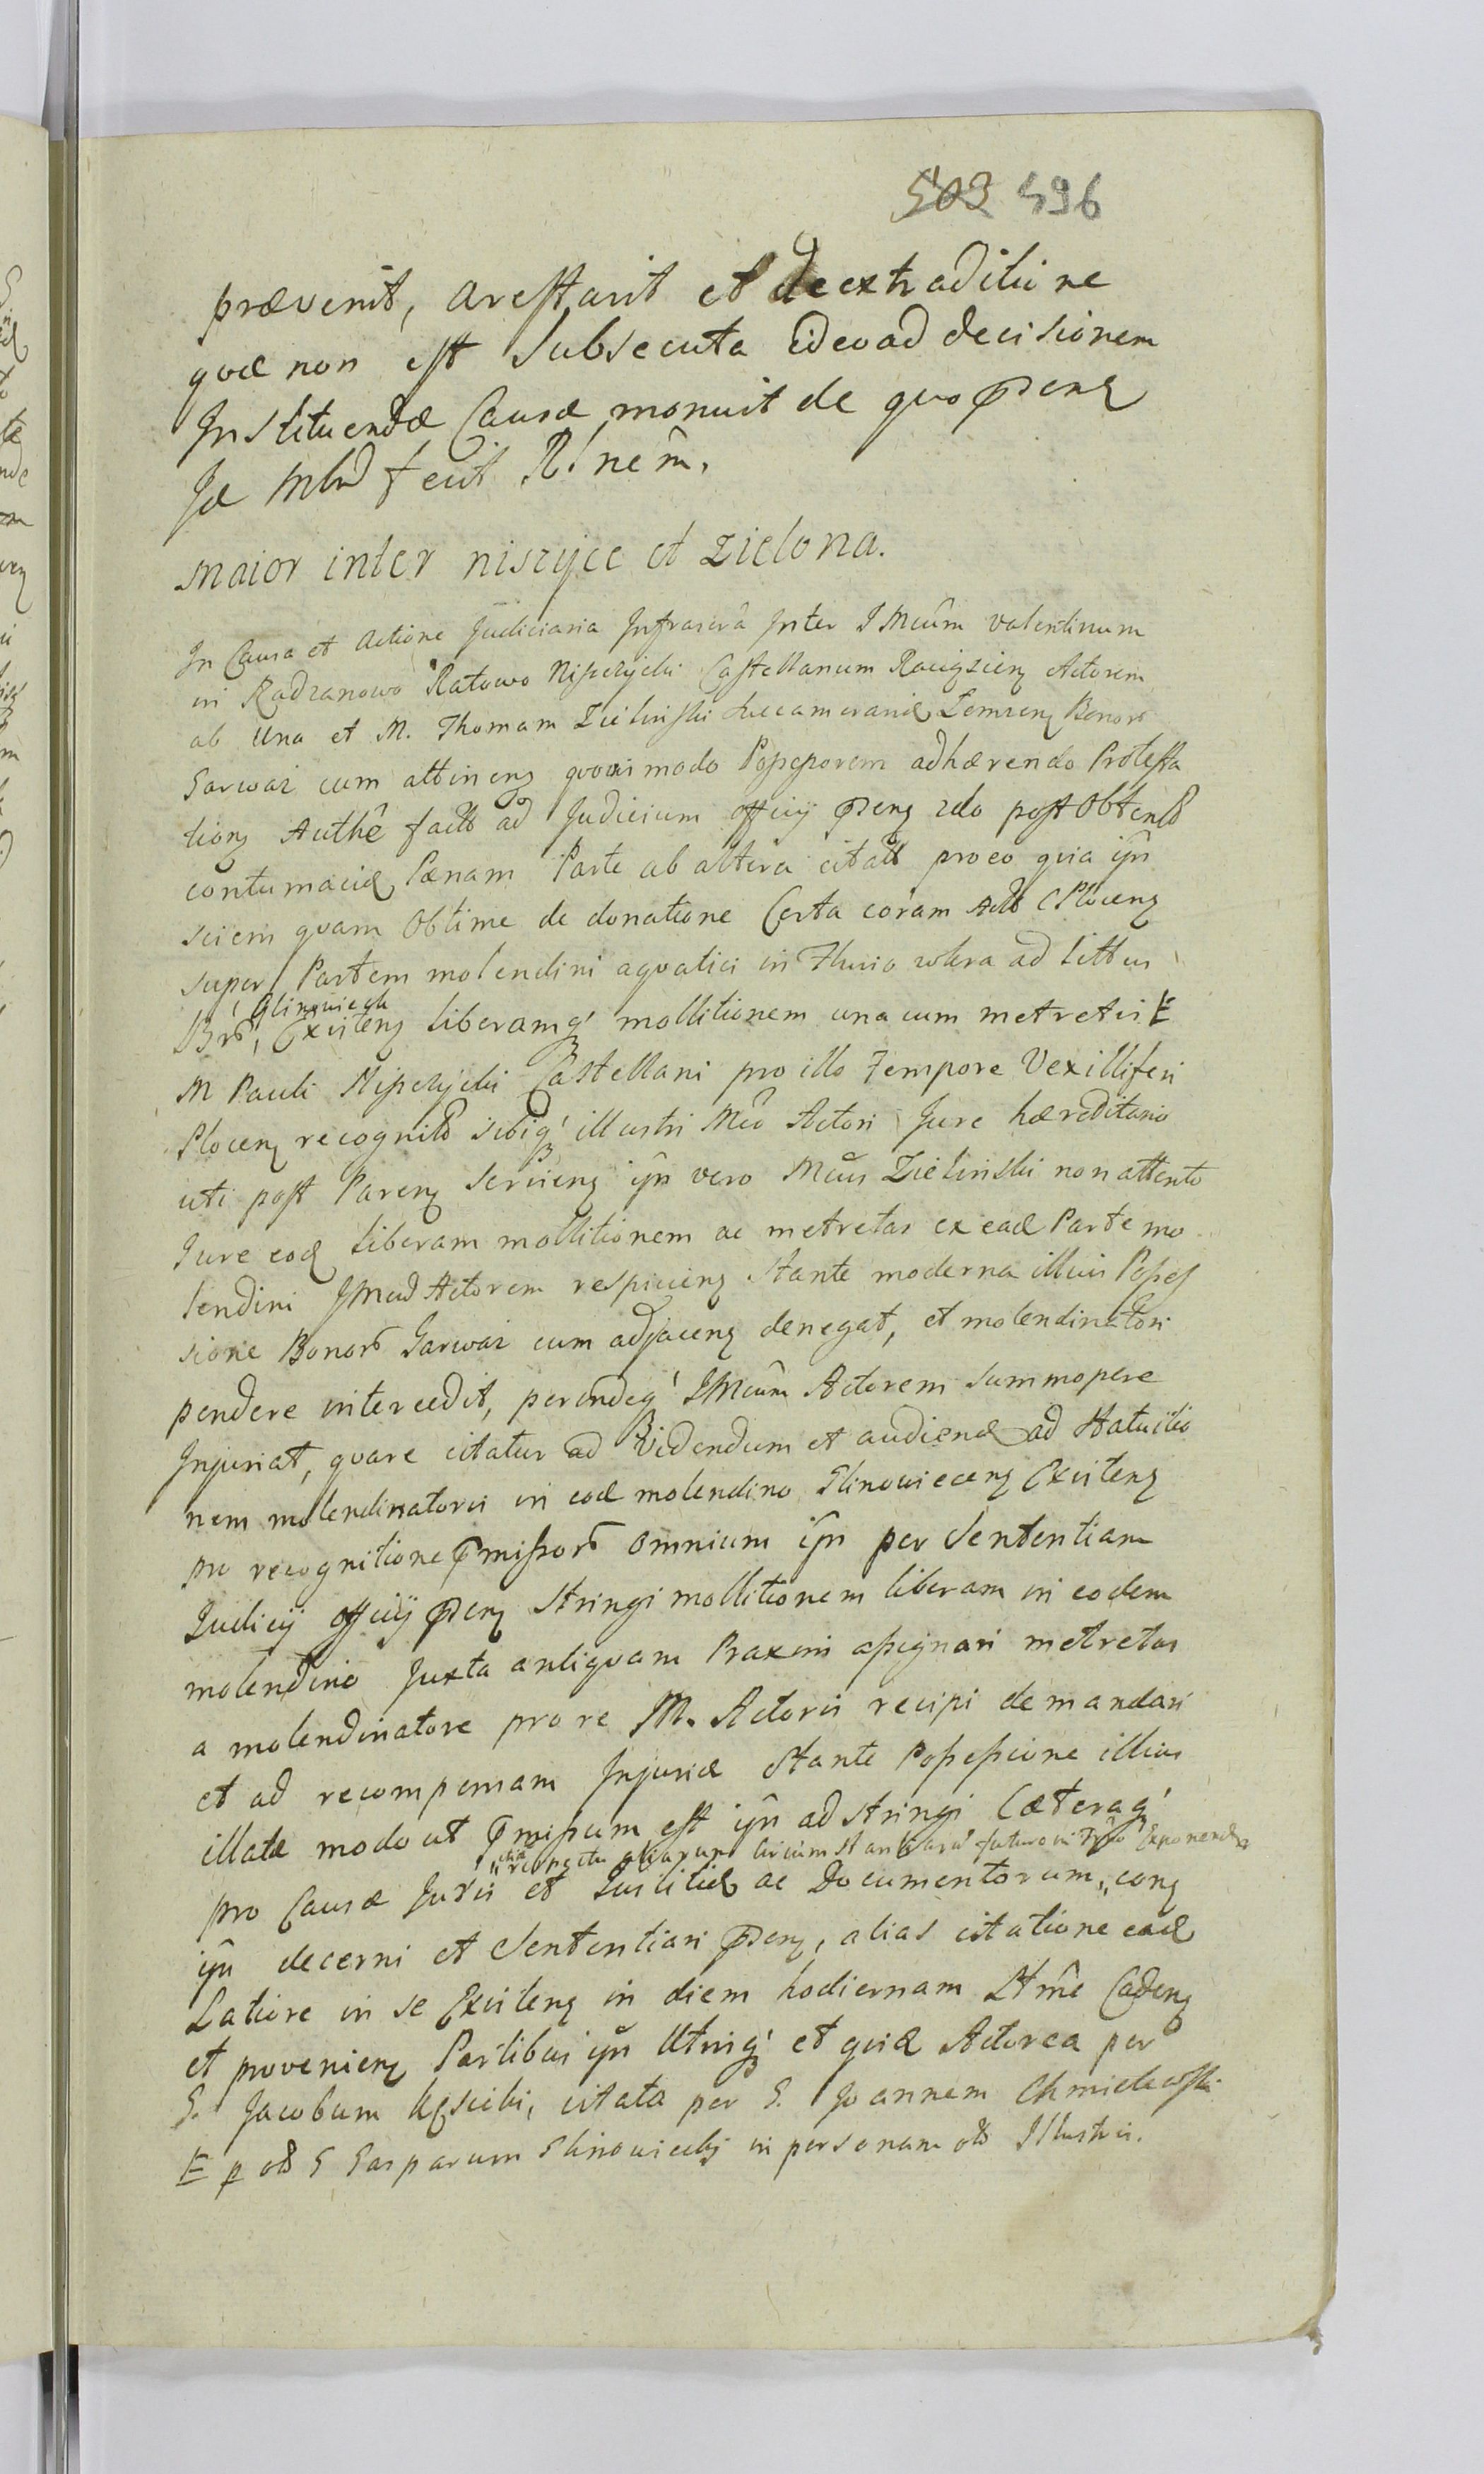 503 496
prævenit, arestavit et de extraditione
quæ non est Subsecuta ideo ad decisionem
Instituendæ Causæ monuit de quo
fecit Rlnem.
Maior inter niszyce et zielona.
In Causa et Actione Judiciaria Infrascra Inter IMcum Valentinum
in Radzanowo Ratowo Niszczycki Castellanum Raciąz Actorem
ab Una et M. Thomam Zielinski Succamerarid Lomzen Bonor
Garwarz cum attinen quovismodo Possessorem adhærendo Protesta
tion Authe facto ad Judicium officij pñen post Obtent
contumaciæ Pænam Parte ab altera citato pro eo quia ipn
sciens quam Obtime de donatione Certa coram Actis C Plocen
super Partem molendini aquatici in Fluvio wkra ad littus
Glinowieck
Existen liberamq mollitionem una cum metretis E
M Pauli Niszczycki Castellani pro illo Tempore Vexilliferi
Plocen recognito sibiq illustri Mco Actori Jure hæreditario
uti post Paren servien ipn vero Mcus Zielinski non attento
Jure eod liberam mollitionem ac metretas ex ead Parte mo
lendini IMcu Actorem respicien Stante moderna illius Posses
sione Bonor Garwarz cum adjacen denegat, et molendinatori
pendere intercedit, perindeq IMcum Actorem summopere
Injuriat, quare citatur ad Videndum et audiend ad Statuitio
nem molendinatoris in eod molendino Glinowiecen Existen
pro recognitione pmissor omnium ipn per Sententiam
Judicij officij pñen stringi mollitionem liberam in eodem
molendino Juxta antiquam Praxim assignari metretas
a molendinatore pro re M. Actoris recipi demandari
et ad recompensam Injuriæ Stante Possessione illius
illatæ modo ut pmissum est ipn adstringi Cæteraq
respectu aliarum circumstantiarum futuro in Exponend
pro Causæ Juris et Justitiæ ac Documentorum,, con
ipn decerni et Sententiari pñen, alias citatione ead
Latiore in se Existen in diem hodiernam Ltme Caden
et provenien Partibus ipn Utrisq et quid Actorea per
G. Jacobum citata per G. Joannem Chmielewski
E p G Gasparum Glinowiecki in personam Illustris.